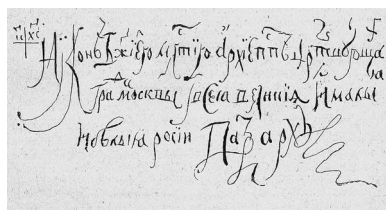 Нїконъ Бжїею млстїю архїепспъ цртвующаг
гра москвы і всеа великия и малы
и бѣлыꙗ росіи Патріархъ